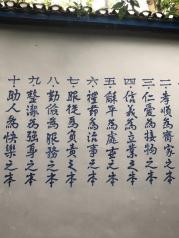 二·孝順為齊家之本
三·仁愛為接物之本
四·信義為立業之本
五·龢平為處世之本
六·禮節為治事之本
七·服從為負責之本
八·勤儉為服務之本
九·整潔為強身之本
十·助人為快樂之本